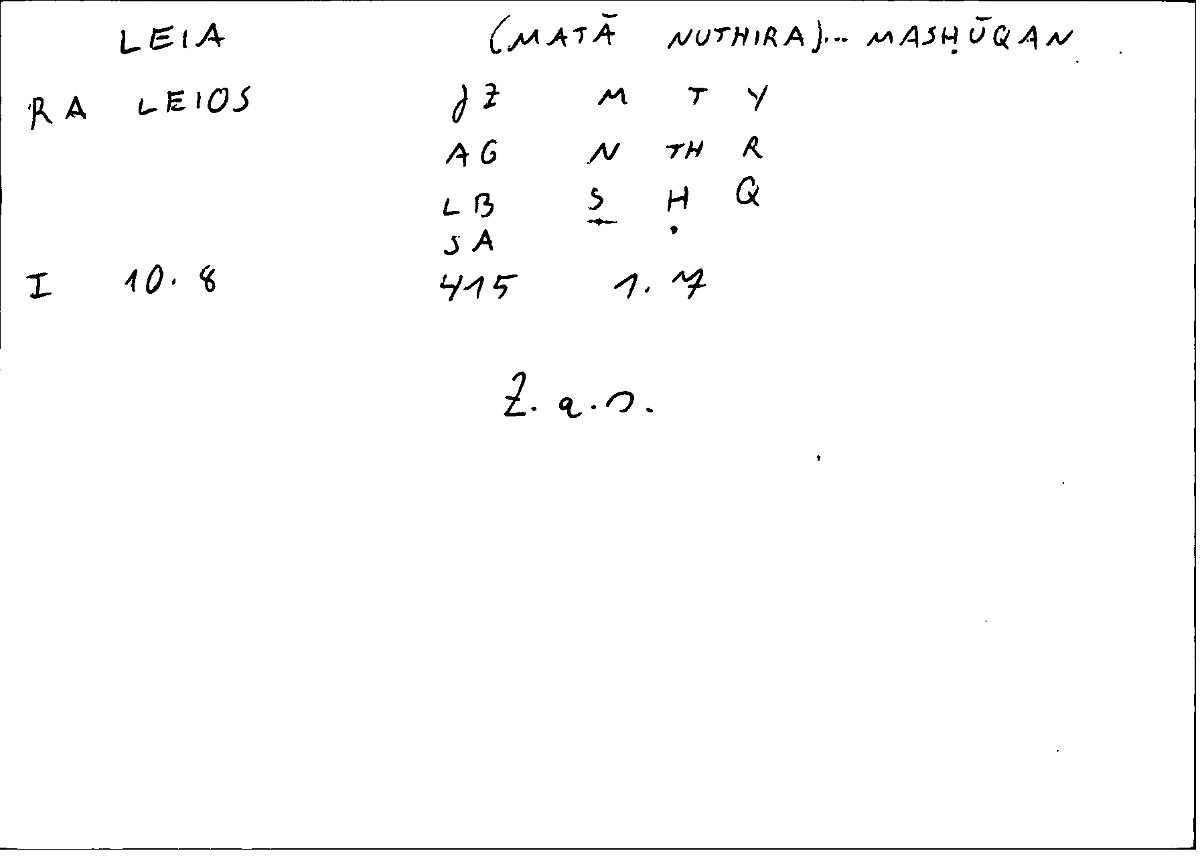 LEIA (MATĀ NUTHIRA)... MASḤŪQAN
RA LEIOS JZ M T Y
AG N TH R
LB S Ḥ Q
SA
I 10.8 415 1.7
Z.a.s.